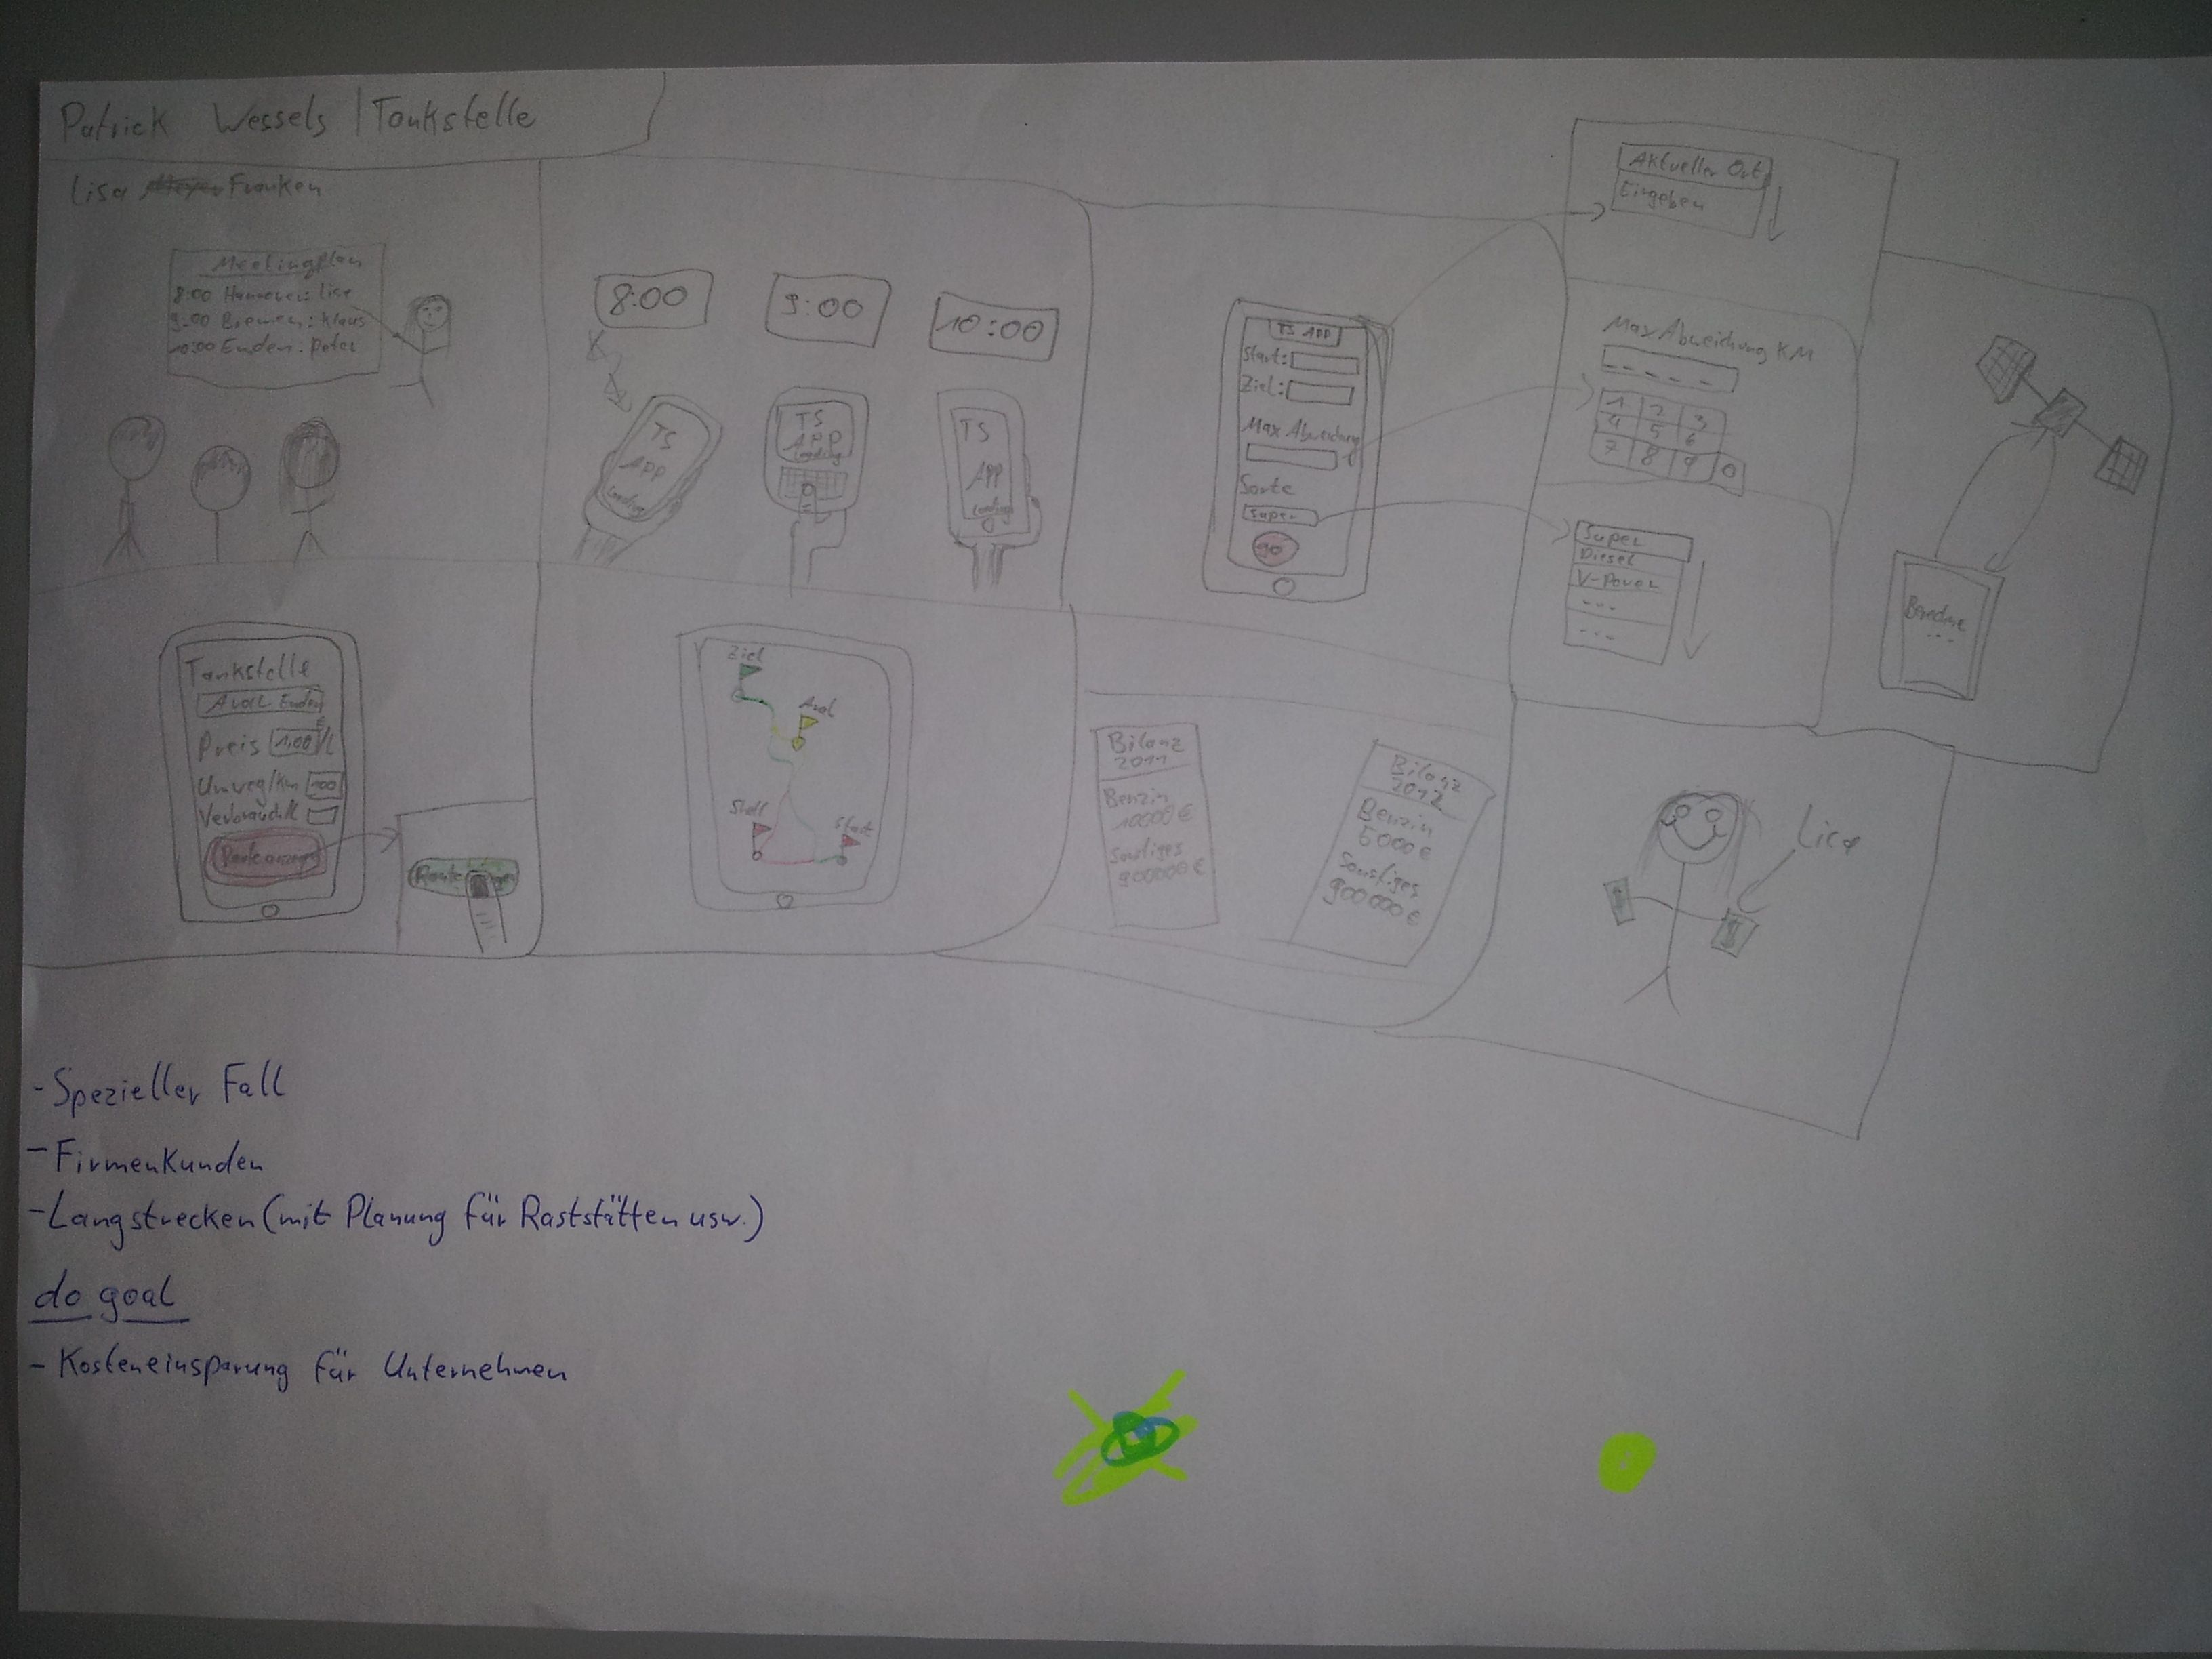 Patrick Wessels | Tankstelle
Lisa Franken
Meetingplan
8:00 Hannover: Lisa
9:00 Bremen: Klaus
10:00 Emden: Peter
8:00
9:00
10:00
TS
APP
Loading
TS
APP
Loading
TS
APP
Loading
TS APP
Start:
Ziel:
Max Abweichung
Sorte
Super
go
Aktueller Ort
Eingeben
Max Abweichung KM
1 2 3
4 5 6
7 8 9 0
Super
Diesel
V-Power
---
---
Berechne
...
Tankstelle
Aral Emden
Preis 1,00 €/l
Umweg/km 100
Verbrauch/l
Route anzeigen
Route
Ziel
Aral
Shell
Start
Bilanz
2011
Benzin
10000 €
Sonstiges
900000 €
Bilanz
2012
Benzin
5000 €
Sonstiges
900 000 €
Lisa
- Spezieller Fall
- Firmenkunden
- Langstrecken (mit Planung für Raststätten usw.)
do goal
- Kosteneinsparung für Unternehmen